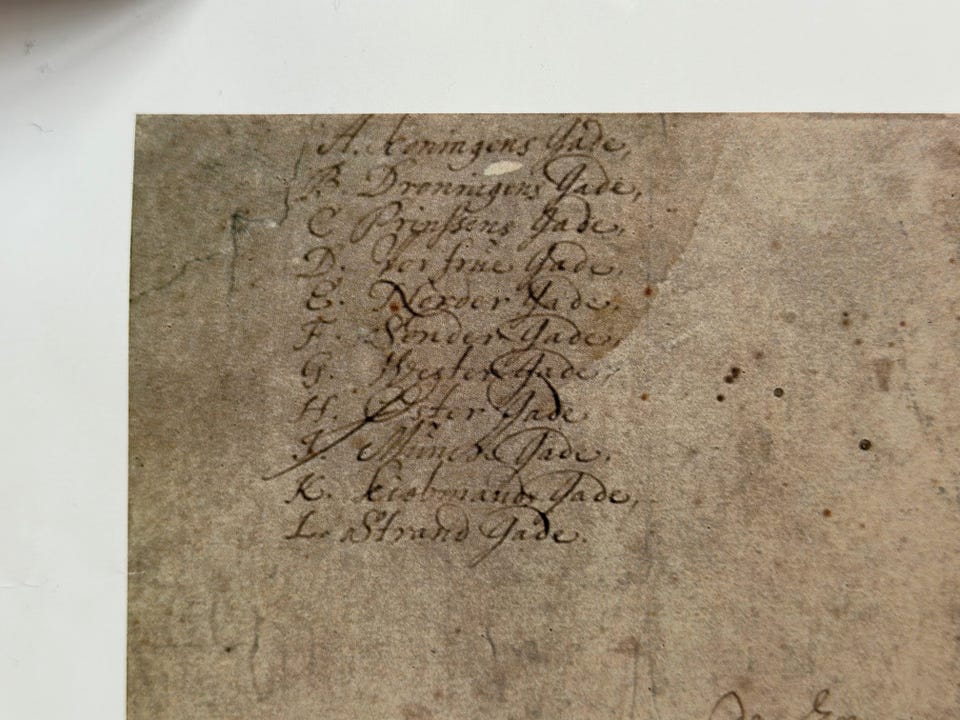 A. Koningens Gade,
B. Dronnigens Gade,
C Prinssens Gade,
D. Vor frue Gade,
E. Nerder Gade,
F. Sønder Gade,
G. Wester Gade,
H. Øster Gade
I. Gade,
K. Kiobmands Gade,
L. Strand Gade.